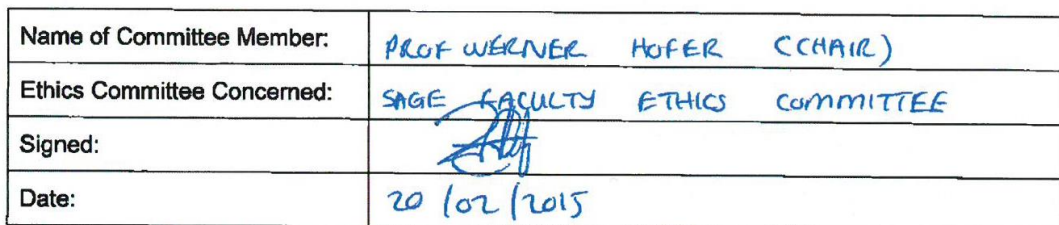 Name of Committee Member: PROF WERNER HOFER (CHAIR)
Ethics Committee Concerned: SAGE FACULTY ETHICS COMMITTEE
Signed:
Date: 20/02/2015